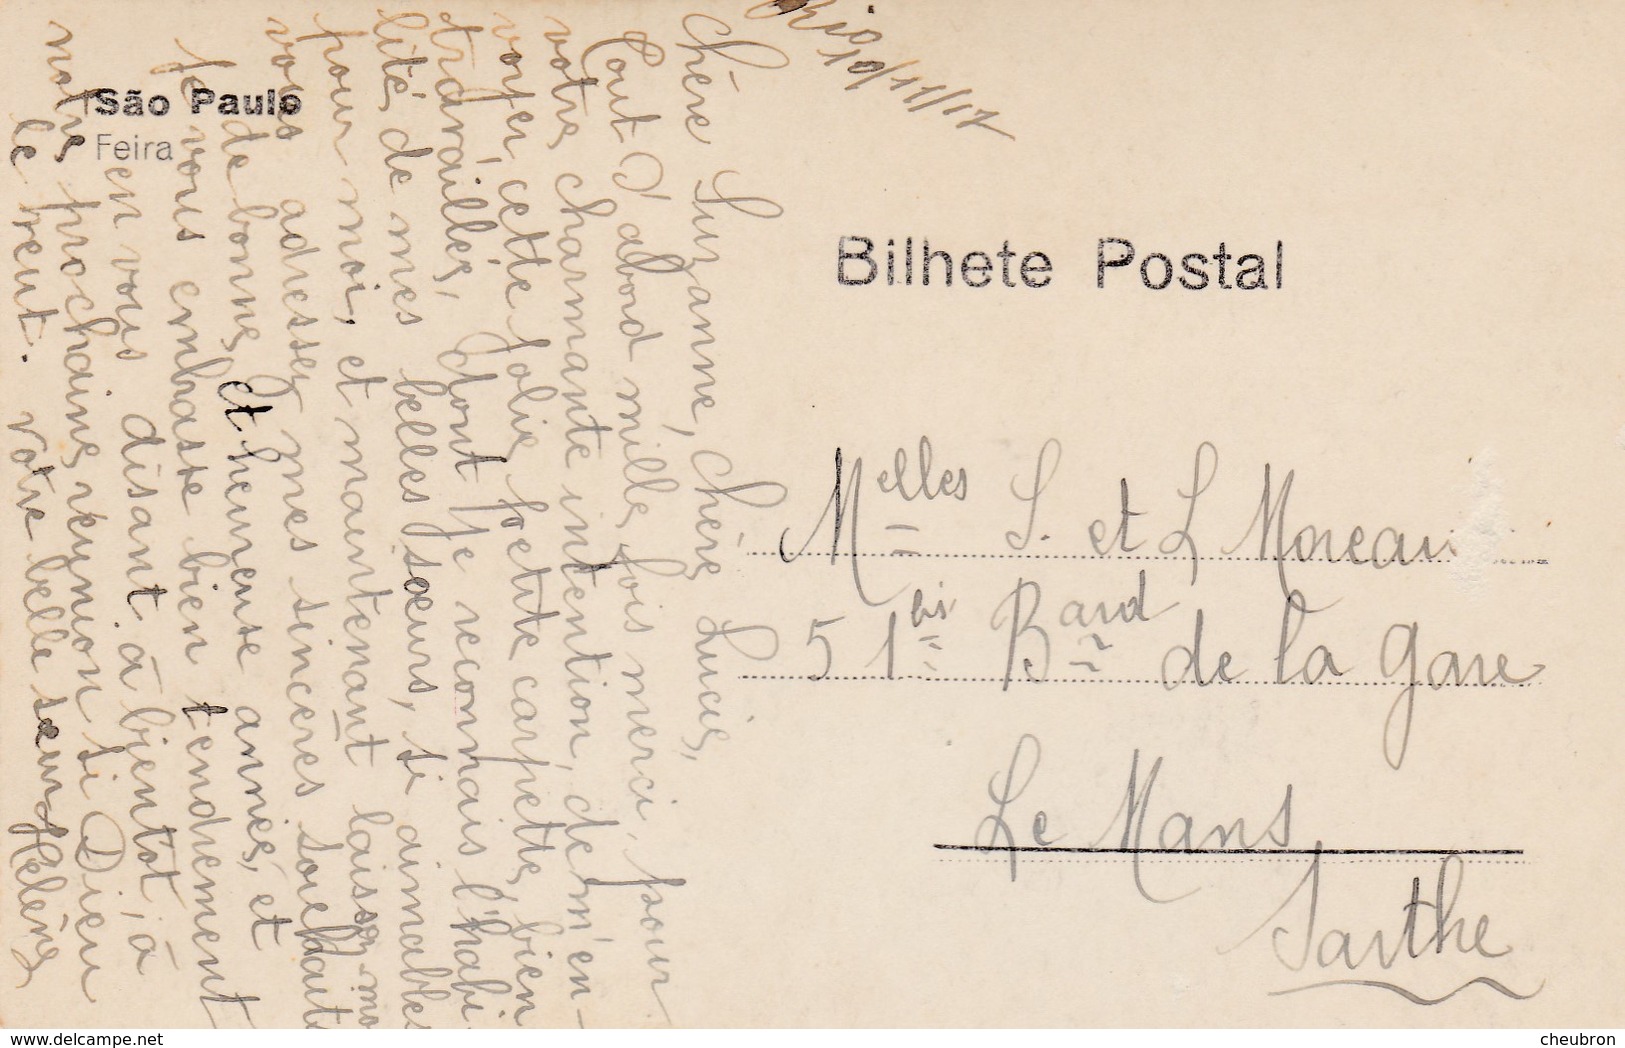 Rio 19/11/17
Chère Suzanne, Chère Lucie,
Tout d'abord mille fois merci, pour
votre charmante intention, de m'en-
voyer, cette jolie petite carpette, bien
travaillée, dont je reconnais l'habi-
lité, de mes belles sœurs, si aimables
pour moi, et maintenant laissez-moi
vous adresser mes sincères souhaits
de bonne, et heureuse année, et
je vous embrasse bien tendrement
en vous disant à bientôt, à
notre prochaine réunion si Dieu
le veut. Votre belle sœur Hélène
São Paulo
Feira
Bilhete Postal
Melles S. et L Moreau
51bis Bard de la gare
Le Mans
Sarthe
www.delcampe.net
cheubron